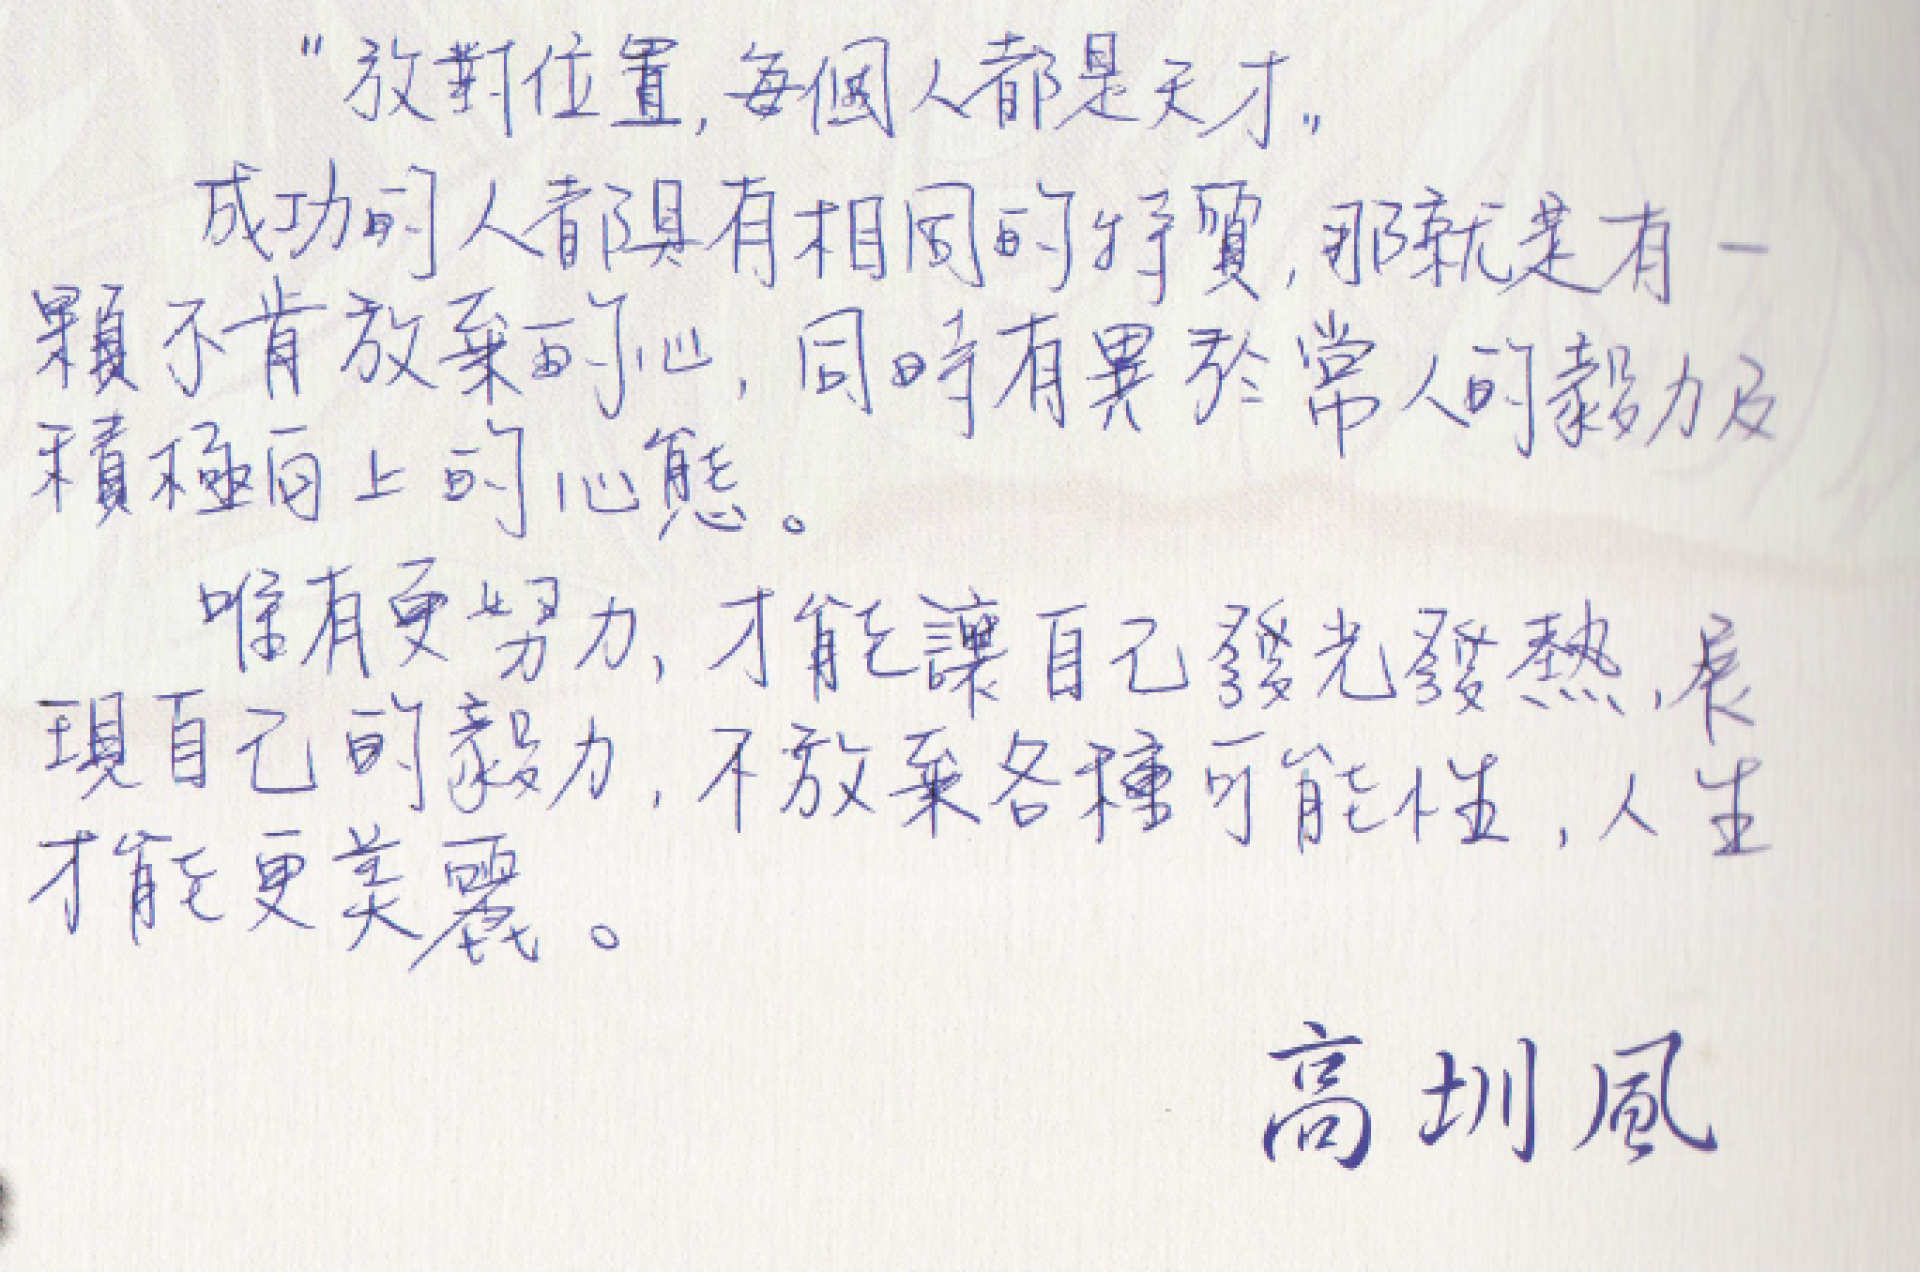 "放對位置,每個人都是天才"
成功的人都具有相同的特質,那就是有一
顆不肯放棄的心,同時有異於常人的毅力及
積極向上的心態。
唯有更努力,才能讓自己發光發熱,展
現自己的毅力,不放棄各種可能性,人生
才能更美麗。
高圳風